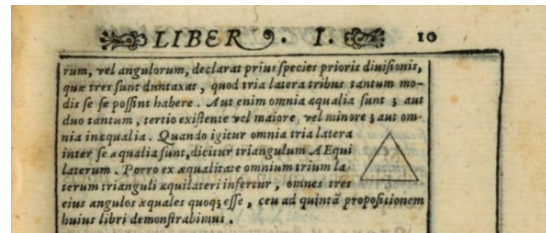 LIBER . I. 10
rum, vel angulorum, declarat prius species prioris divisionis,
quæ tres sunt duntaxat, quod tria latera tribus tantum mo-
dis se se possint habere. Aut enim omnia æqualia sunt; aut
duo tantum, tertio existente vel maiore, vel minore; aut om-
nia inæqualia. Quando igitur omnia tria latera
inter se æqualia sunt, dicitur triangulum AEqui
laterum. Porro ex æqualitate omnium trium la-
terum trianguli æquilateri infertur, omnes tres
eius angulos æquales quoq; esse, ceu ad quintã propositionem
huius libri demonstrabimus.